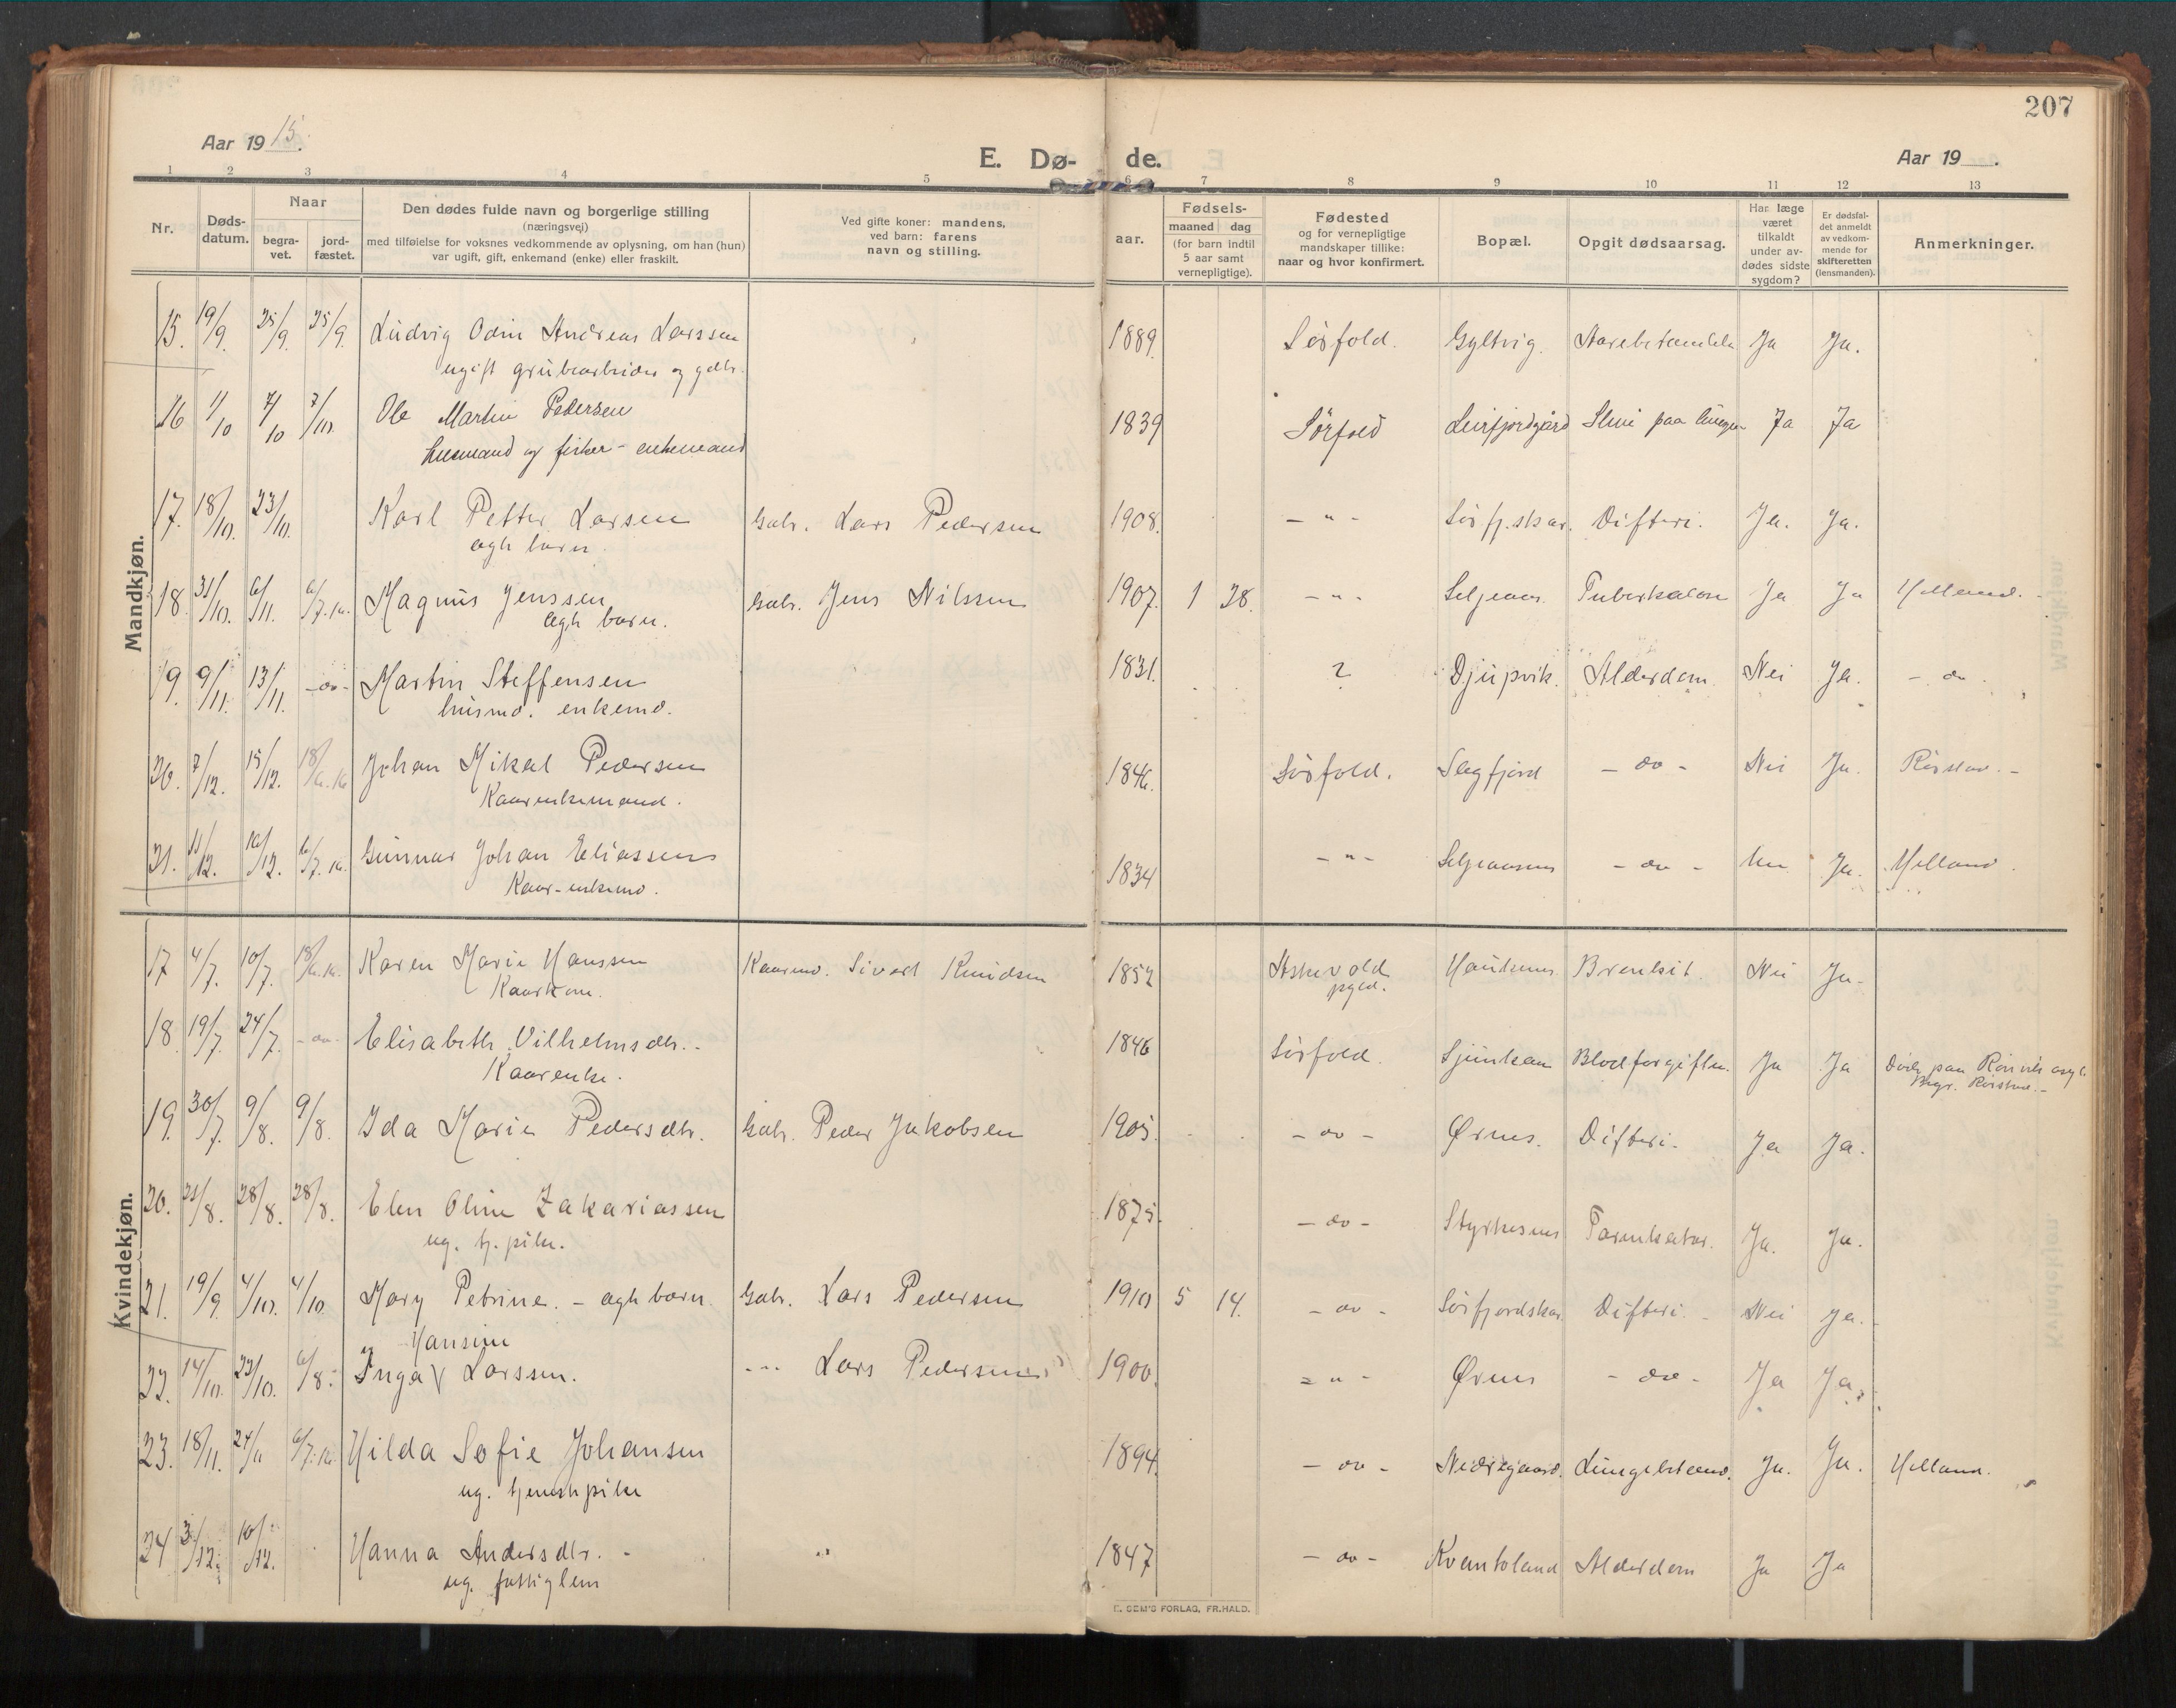 207
Aar 19 15.
E. Dø- de.
Aar 19 .
1 2 3 4 5 6 7 8 9 10 11 12 13
Nr.
Døds-
datum.
Naar
begra-
vet.
jord-
fæstet.
Den dødes fulde navn og borgerlige stilling
(næringsvei)
med tilføielse for voksnes vedkommende av oplysning, om han (hun)
var ugift, gift, enkemand (enke) eller fraskilt.
Ved gifte koner: mandens,
ved barn: farens
navn og stilling.
aar.
Fødsels-
maaned dag
(for barn indtil
5 aar samt
vernepligtige).
Fødested
og for vernepligtige
mandskaper tillike:
naar og hvor konfirmert.
Bopæl.
Opgit dødsaarsag.
Har læge
været
tilkaldt
under av-
dødes sidste
sygdom?
Er dødsfal-
det anmeldt
av vedkom-
mende for
skifteretten
(lensmanden).
Anmerkninger.
Mandkjøn.
15. 19/9. 25/9. 25/9. Ludvig Odin Andreas Larssen 1889. Sørfold. Gyltvig. Ja Ja.
ugift grubearbeider og gdbr.
16 1/10 7/10 7/10. Ole Martin Pedersen 1839 Sørfold Leirfjordgård Slim paa lungen Ja Ja
husmand og fisker - enkemand
17. 18/10. 23/10. Karl Petter Larsen Gabr. Lars Pedersen 1908. - " - Sørfj.skar. Difteri. Ja. Ja.
egte barn.
18. 31/10. 6/11. 6/7. 16. Magnus Jenssen Gabr. Jens Nilssen 1907. 1 28. - " - Seljeaas. Tuberkulose Ja Ja Helland.
egte barn.
19. 9/11. 13/11. - do - Martin Steffensen 1831. ? Djupvik. Alderdom. Nei Ja. - do -
husmd. enkemd.
20. 7/12. 15/12. 18/6. 16 Johan Mikal Pedersen 1846. Sørfold. Segfjord - do - Nei Ja. Rørstad. -
Kaarenkemand.
21. 11/12. 16/12. 6/7. 16. Gunnar Johan Eliassen 1834 - " - Seljeaasen - do - Ja. Helland.
Kaar-enkemd.
Kvindekjøn.
17 4/7. 10/7. 18/6. 16. Karen Marie Hanssen Kaarmd. Sivert Knudsen 1852 Askvold Haukenes Nei Ja.
pgld.
Kaarkone.
18. 19/7. 24/7. - do - Elisabeth Vilhelmsdtr. 1846 Sørfold. Sjunkan Blodforgiftn. Ja Ja Døde paa Rønvik asyl.
Kaarenke. Begr. Rørstad. -
19. 30/7. 9/8. 9/8. Ida Marie Pedersdtr. Gabr. Peder Jakobsen 1905. - do - Ørnes. Difteri. Ja Ja.
20. 21/8. 28/8. 28/8. Elen Oline Zakariassen 1875. - do - Styrkesnes Tarmkatar. Ja. Ja.
ug. tj. pike.
21. 19/9. 4/10. 4/10 Mary Petrine. - egte barn. Gabr. Lars Pedersen 1910 5 14. - do - Sørfjordskar. Difteri. - Nei Ja.
Hansine
22. 14/10. 23/10. 6/8. Inga Larssen. - " - Lars Pedersen 1900. - " - Ørnes - do - Ja Ja.
23. 18/11. 24/11 6/7. 16. Hilda Sofie Johansen 1894. - do - Nedregaard. Lungebetænd. Ja. Ja. Helland.
ug. tjenestepike
24 3/12. 10/12. Hanna Andersdtr. - " 1847 - do - Kvantoland Alderdom Ja Ja
ug. fattiglem
E. SEM'S FORLAG, FR.HALD.